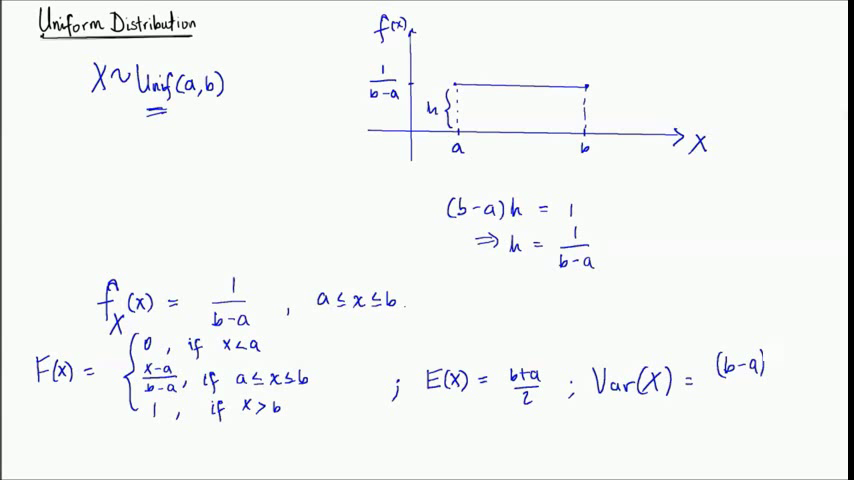 Uniform Distribution
X ~ Unif(a,b)
f(x)
1/(b-a)
h {
a b X
(b-a)h = 1
⇒ h = 1/(b-a)
f_X(x) = 1/(b-a) , a ≤ x ≤ b.
F(x) = { 0 , if x < a
(x-a)/(b-a) , if a ≤ x ≤ b
1 , if x > b
; E(X) = (b+a)/2 ; Var(X) = (b-a)